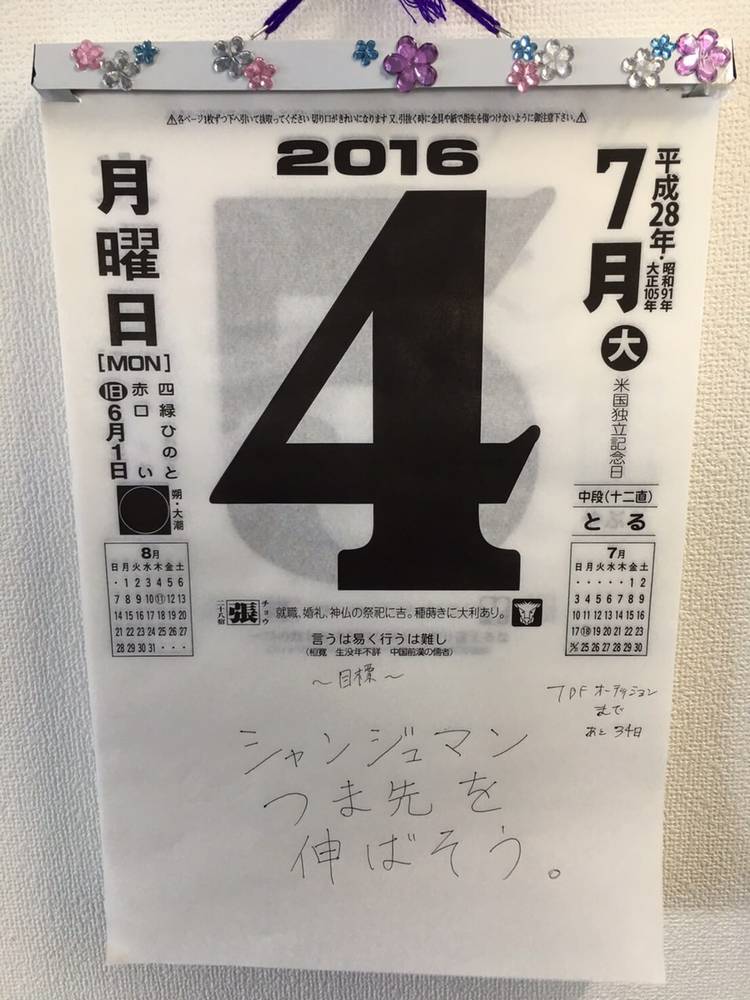 ⚠各ページ1枚ずつ下へ引いて抜取ってください 切り口がきれいになります 又、引抜く時に金具や紙で指先を傷つけないように御注意下さい。⚠
2016
月曜日
[MON]
四緑ひのとい
赤口
旧6月1日
朔・大潮
4
7月
大
平成28年・昭和91年
大正105年
米国独立記念日
中段(十二直)
とる
8月
日月火水木金土
・123456
78910⑪1213
14151617181920
21222324252627
28293031・・・
7月
日月火水木金土
・・・・・12
3456789
10111213141516
17⑱1920212223
24/31252627282930
二十八宿 張 チョウ 就職、婚礼、神仏の祭祀に吉。種蒔きに大利あり。
言うは易く行うは難し
(桓寛 生没年不詳 中国前漢の儒者)
〜目標〜
シャンジュマン
つま先を
伸ばそう。
TDFオーディション
まで
あと34日